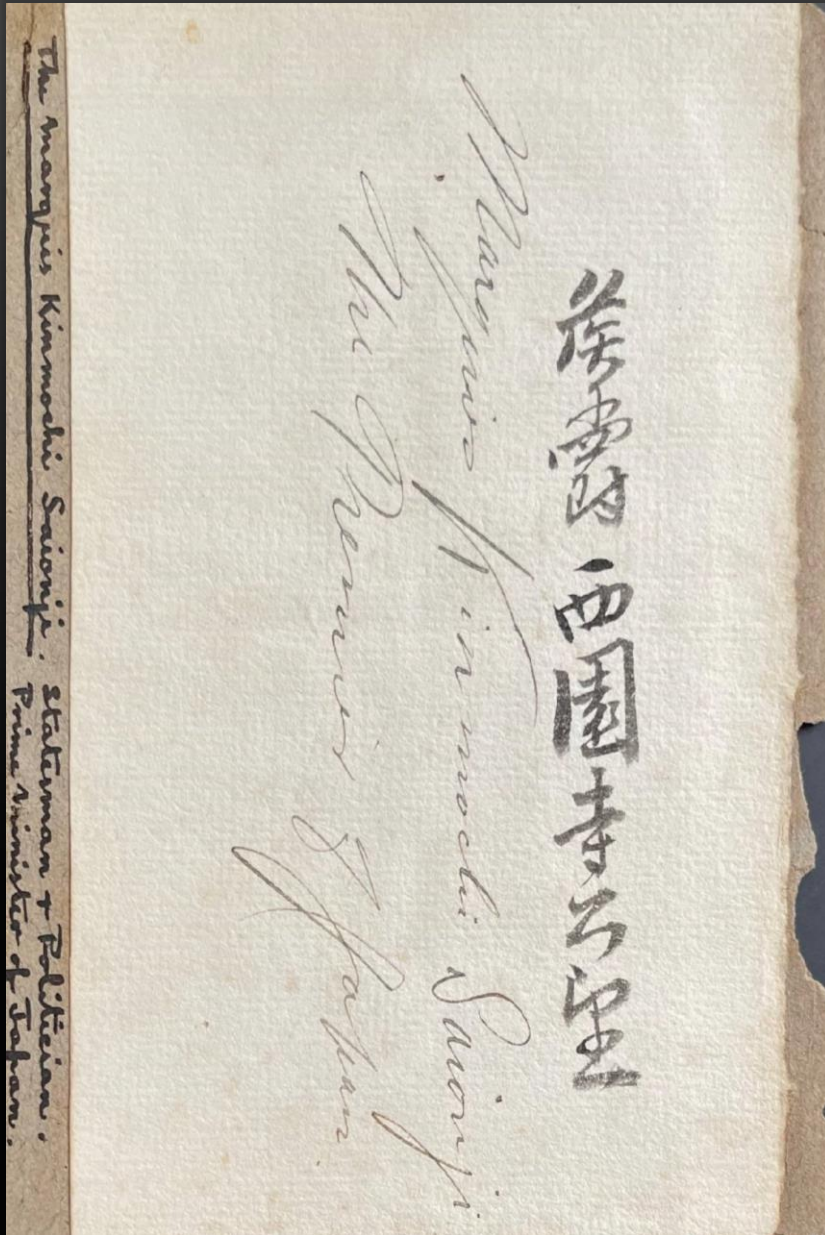 侯爵西園寺公望
Marquis Kinmochi Saionji
The Premier of Japan.
The Marquis Kinmochi Saionji. Statesman & Politician.
Prime Minister of Japan.